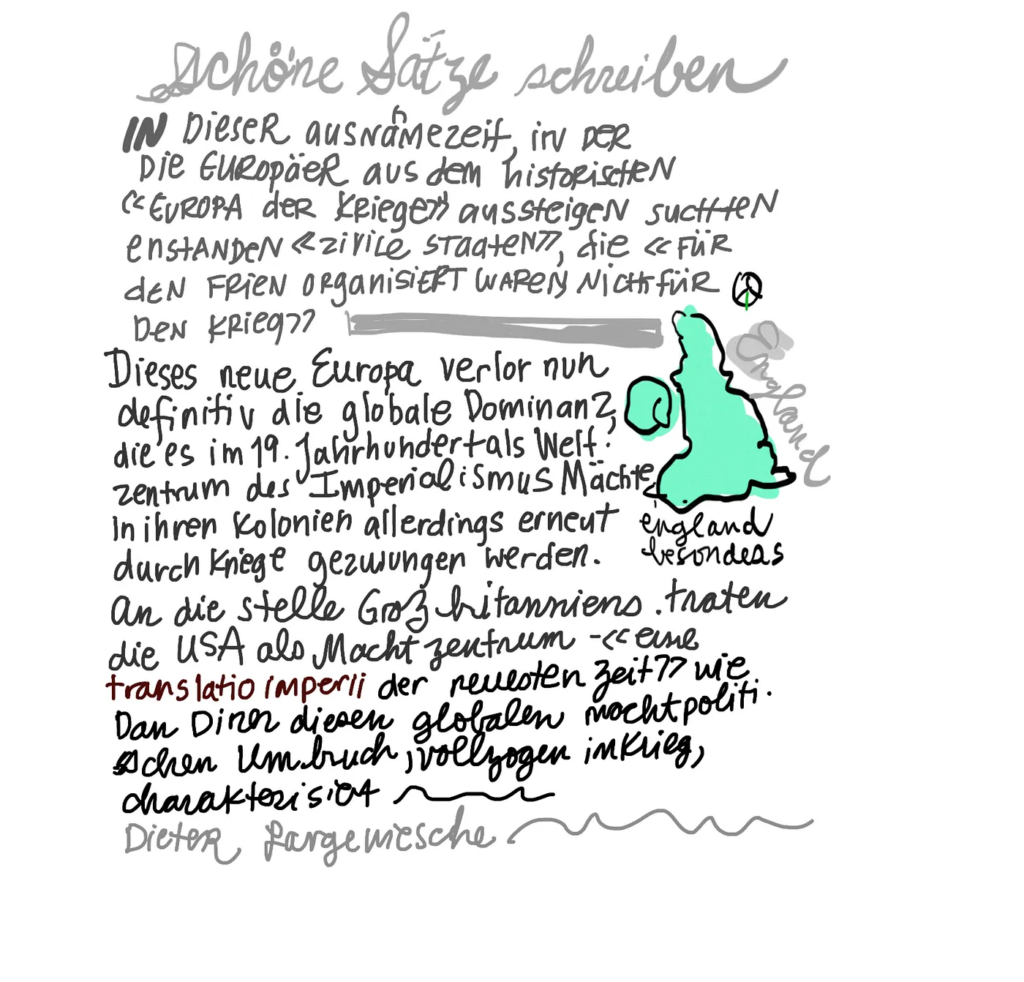 schöne Sätze schreiben
IN DIESER AUSNAhMEZEIT, IN DER
DIE EUROPÄER AUS DEM historischEN
«EUROPA der Kriege» aussteigen suchtten
enstanden «zivile Staaten», die «FÜR
den Frien organisiert waren nicht für
Den Krieg»
England
Dieses neue Europa verlor nun
definitiv die globale Dominanz,
die es im 19. Jahrhundert als Welt-
zentrum des Imperialismus Mächte,
In ihren Kolonien allerdings erneut
durch Kriege gezwungen werden.
england
besonders
An die stelle Großbritanniens traten
die USA als Machtzentrum - «eine
translatio imperii der neuesten Zeit» wie
Dan Diner diesen globalen machtpoliti-
schen Umbruch, vollzogen im Krieg,
charakterisiert
Dieter Langewiesche